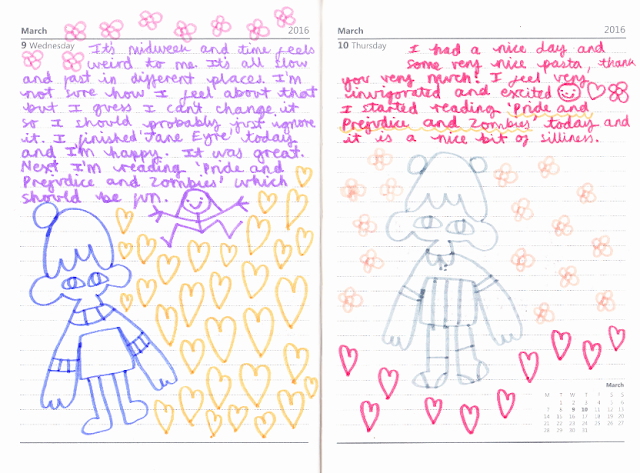 March 2016
9 Wednesday It's midweek and time feels
weird to me. It's all slow
and fast in different places. I'm
not sure how I feel about that
but I guess I can't change it
so I should probably just ignore
it. I finished 'Jane Eyre' today
and I'm happy. It was great.
Next I'm reading 'Pride and
Prejudice and Zombies' which
should be fun.
March 2016
10 Thursday I had a nice day and
some very nice pasta, thank
you very much! I feel very
invigorated and excited
I started reading 'Pride and
Prejudice and Zombies' today and
it is a nice bit of silliness.
March
M T W T F S S
1 2 3 4 5 6
7 8 9 10 11 12 13
14 15 16 17 18 19 20
21 22 23 24 25 26 27
28 29 30 31